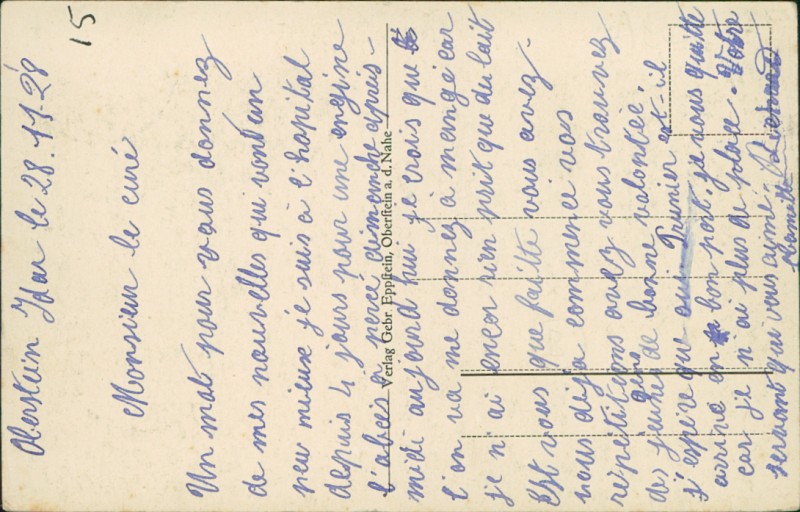 15
Oberstein Idar le 28.11.28
Monsieur le curé
Un mot pour vous donnez
de mes nouvelles qui vont un
peu mieux je suis à l'hopital
depuis 4 jours pour une engine
l'abcès a percé dimanche après-
midi aujourd hui je crois que
l'on va me donnez à mangé car
je n'ai encor rien prit que du lait
Est vous que faitte vous avez-
vous déja commencé vos
répétitions avez vous trouvez
des jeunes gens de bonne volontée.
J'espère que Prunier est-il
arrivé en bon port. je vous quitte
car je n'ai plus de place. Votre
servant qui vous aime.
Verlag Gebr. Eppstein, Oberstein a. d. Nahe